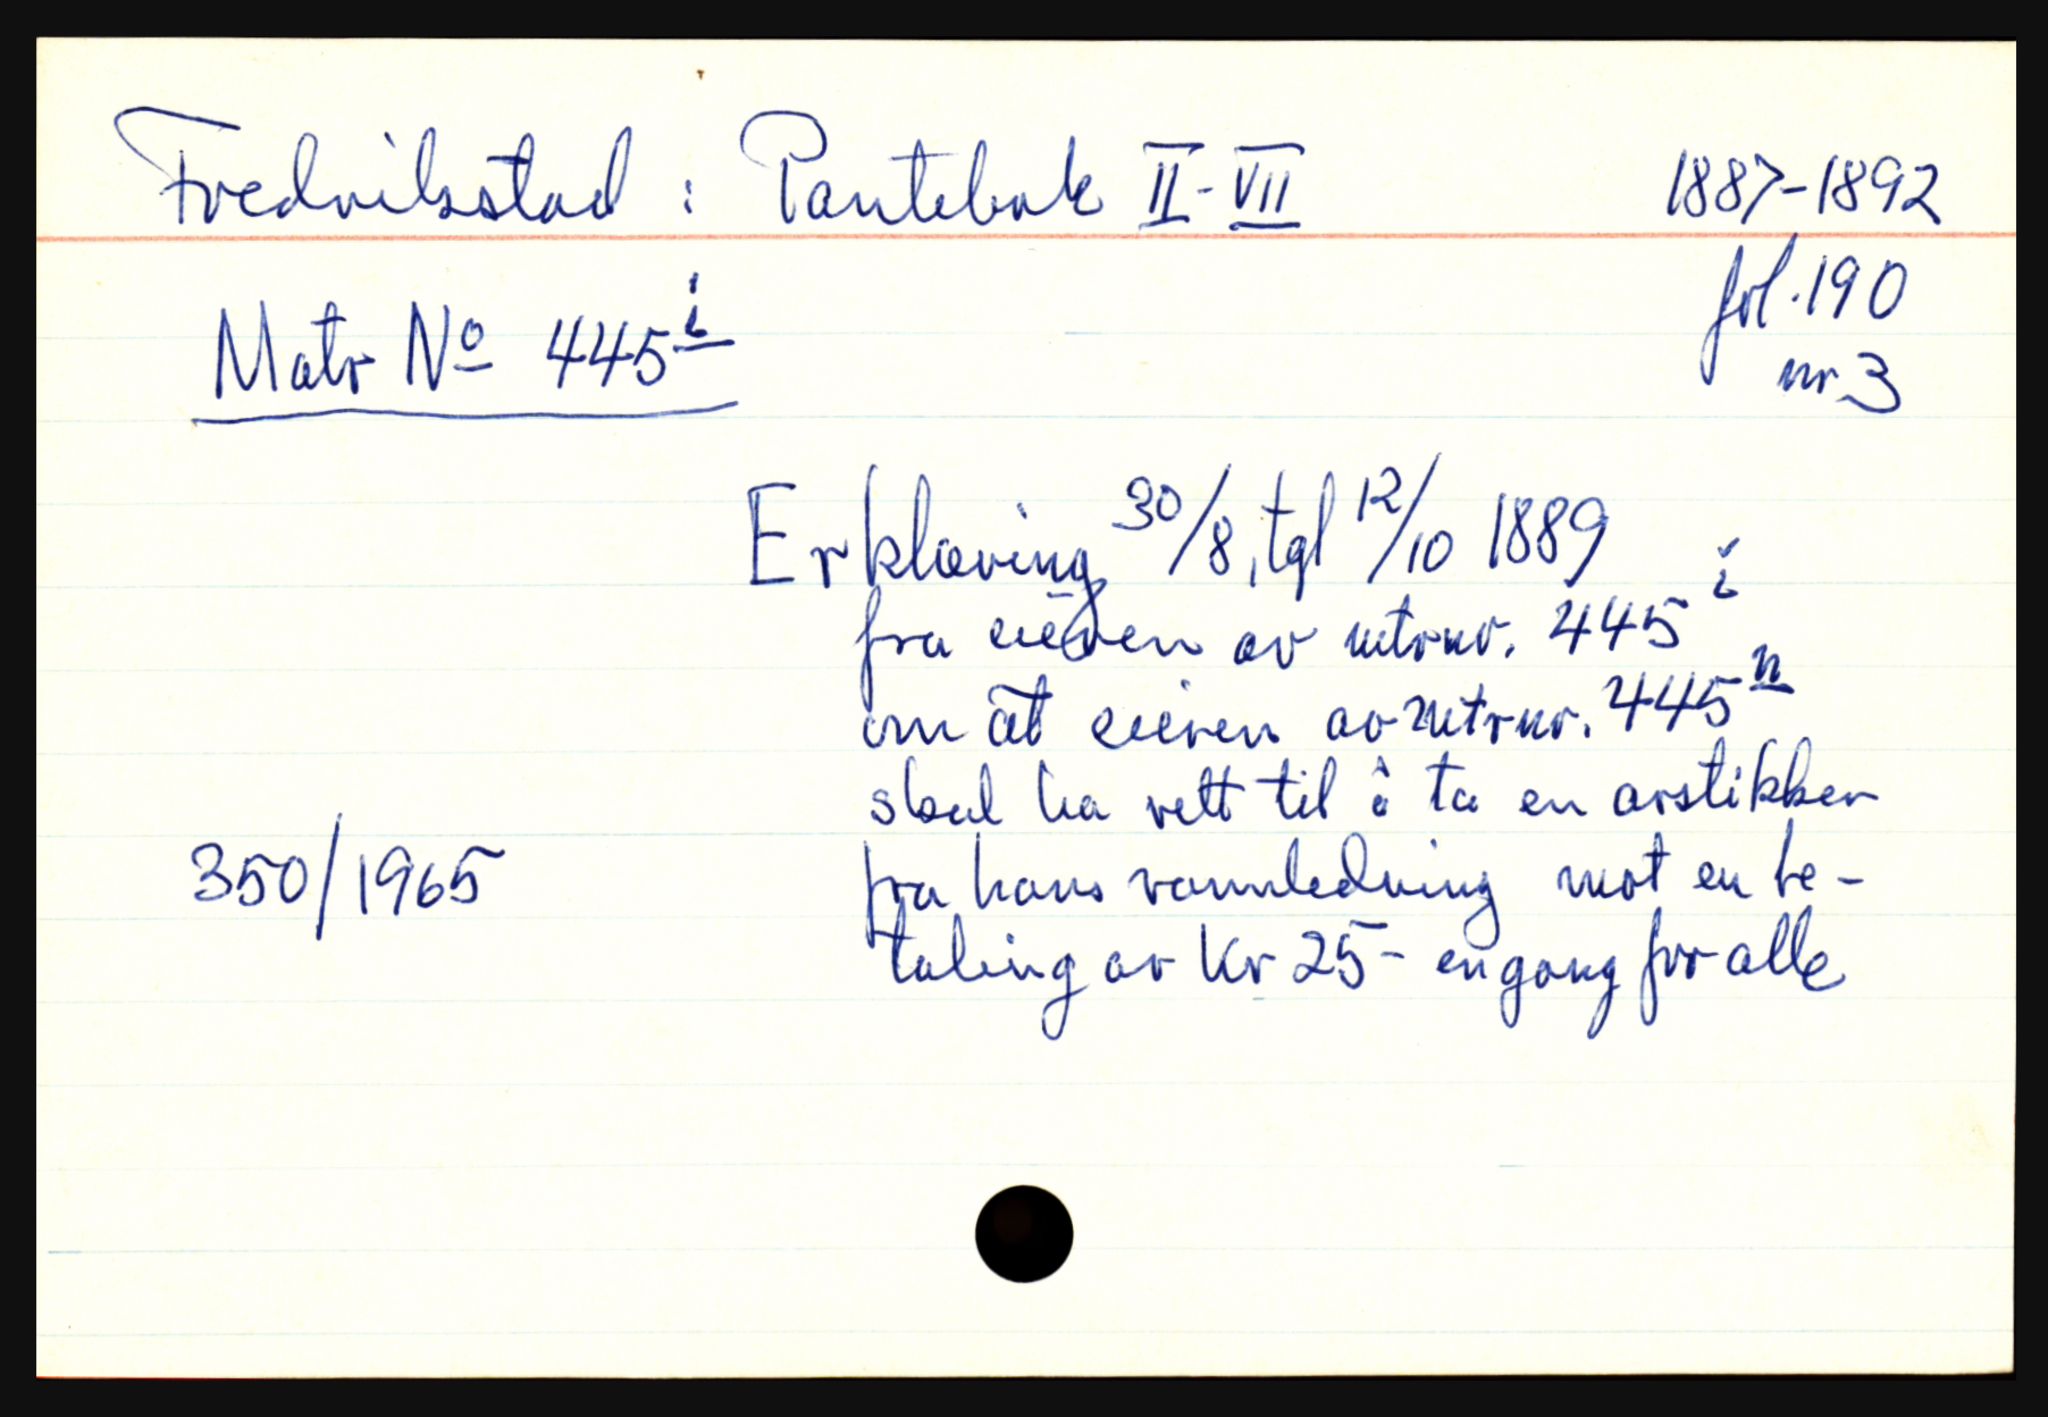 Fredrikstad : Pantebok II-VII 1887-1892
fol. 190
Matr Nº 445 i
nr 3
Erklæring 30/8, tgl 12/10 1889
fra eieren av mtrnr. 445 i
om at eieren av mtrnr. 445 n
skal ha rett til å ta en avstikker
350/1965 fra hans vannledning mot en be-
taling av Kr 25- en gang for alle